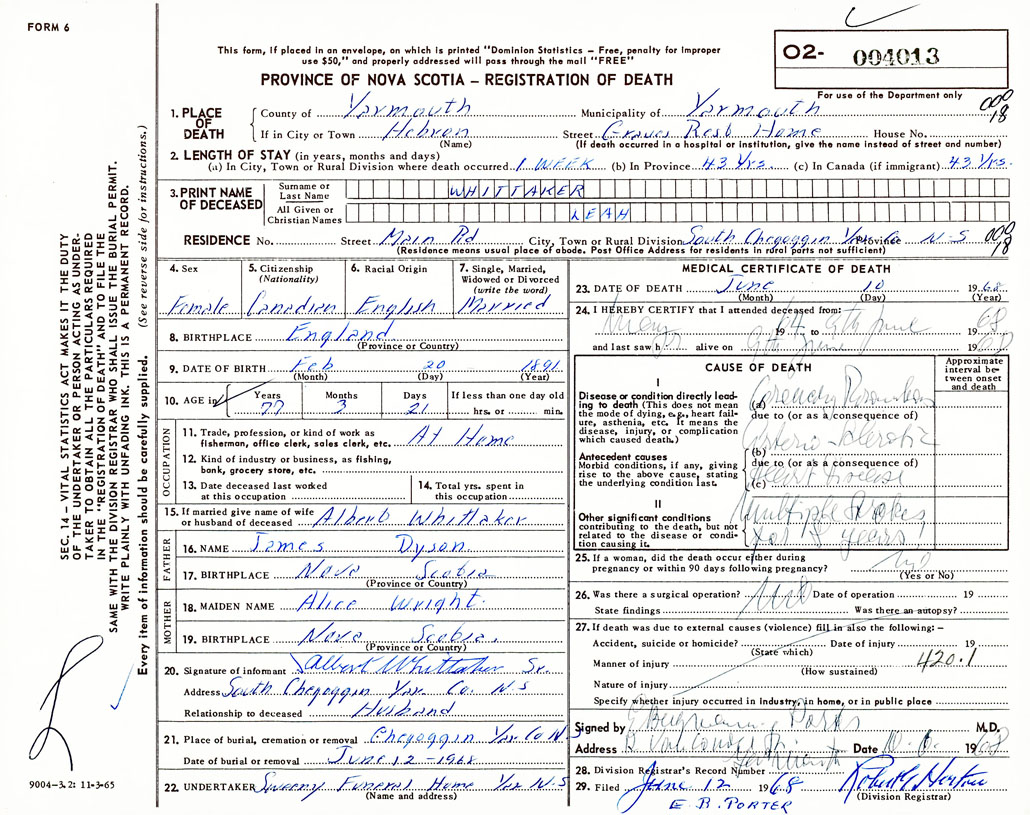 FORM 6
This form, if placed in an envelope, on which is printed "Dominion Statistics – Free, penalty for improper
use $50," and properly addressed will pass through the mail "FREE"
PROVINCE OF NOVA SCOTIA – REGISTRATION OF DEATH
O2- 004013
For use of the Department only
000
18
1. PLACE OF DEATH
County of Yarmouth Municipality of Yarmouth
If in City or Town Hebron Street Graves Rest Home House No.
(Name) (If death occurred in a hospital or institution, give the name instead of street and number)
2. LENGTH OF STAY (in years, months and days)
(a) In City, Town or Rural Division where death occurred 1 WEEK (b) In Province 43 Yrs. (c) In Canada (if immigrant) 43 Yrs.
3. PRINT NAME OF DECEASED
Surname or Last Name WHITTAKER
All Given or Christian Names LEAH
RESIDENCE No. Street Main Rd City, Town or Rural Division South Chegoggin Yar. Co. Province N-S 000
18
(Residence means usual place of abode. Post Office Address for residents in rural parts not sufficient)
4. Sex Female
5. Citizenship (Nationality) Canadian
6. Racial Origin English
7. Single, Married, Widowed or Divorced (write the word) Married
8. BIRTHPLACE England
(Province or Country)
9. DATE OF BIRTH Feb 20 1891
(Month) (Day) (Year)
10. AGE in Years Months Days If less than one day old
77 3 21 hrs. or min.
OCCUPATION
11. Trade, profession, or kind of work as
fisherman, office clerk, sales clerk, etc. At Home
12. Kind of industry or business, as fishing,
bank, grocery store, etc.
13. Date deceased last worked
at this occupation
14. Total yrs. spent in
this occupation
15. If married give name of wife
or husband of deceased Albert Whittaker
FATHER
16. NAME James Dyson
17. BIRTHPLACE Nova Scotia
(Province or Country)
MOTHER
18. MAIDEN NAME Alice Wright
19. BIRTHPLACE Nova Scotia
(Province or Country)
20. Signature of informant Albert Whittaker Sr.
Address South Chegoggin Yar. Co. N-S
Relationship to deceased Husband
21. Place of burial, cremation or removal Chegoggin Yar Co N.S
Date of burial or removal June 12 - 1968
22. UNDERTAKER Sweeny Funeral Home Yar N.S
(Name and address)
MEDICAL CERTIFICATE OF DEATH
23. DATE OF DEATH June 10 1968
(Month) (Day) (Year)
24. I HEREBY CERTIFY that I attended deceased from:
19 to 9th June 1968
and last saw h alive on 9th June 1968
CAUSE OF DEATH
Approximate interval between onset and death
I
Disease or condition directly leading to death (This does not mean the mode of dying, e.g., heart failure, asthenia, etc. It means the disease, injury, or complication which caused death.)
(a) Coronary Thrombosis
due to (or as a consequence of)
Antecedent causes
Morbid conditions, if any, giving rise to the above cause, stating the underlying condition last.
(b) Arterio-sclerotic
due to (or as a consequence of)
(c) Heart Disease
II
Other significant conditions contributing to the death, but not related to the disease or condition causing it.
Multiple Strokes
for 8 years
25. If a woman, did the death occur either during
pregnancy or within 90 days following pregnancy? No
(Yes or No)
26. Was there a surgical operation? No Date of operation 19
State findings Was there an autopsy?
27. If death was due to external causes (violence) fill in also the following: –
Accident, suicide or homicide? Date of injury 19
(State which)
Manner of injury 420.1
(How sustained)
Nature of injury
Specify whether injury occurred in industry, in home, or in public place
Signed by M.D.
Address Date 10. 6. 1968
28. Division Registrar's Record Number
29. Filed June 12 1968
(Division Registrar)
E. B. PORTER
SEC. 14 – VITAL STATISTICS ACT MAKES IT THE DUTY
OF THE UNDERTAKER OR PERSON ACTING AS UNDER-
TAKER TO OBTAIN ALL THE PARTICULARS REQUIRED
IN THE "REGISTRATION OF DEATH" AND TO FILE THE
SAME WITH THE DIVISION REGISTRAR WHO SHALL ISSUE THE BURIAL PERMIT.
WRITE PLAINLY WITH UNFADING INK. THIS IS A PERMANENT RECORD.
Every item of information should be carefully supplied. (See reverse side for instructions.)
9004–3.2: 11-3-65